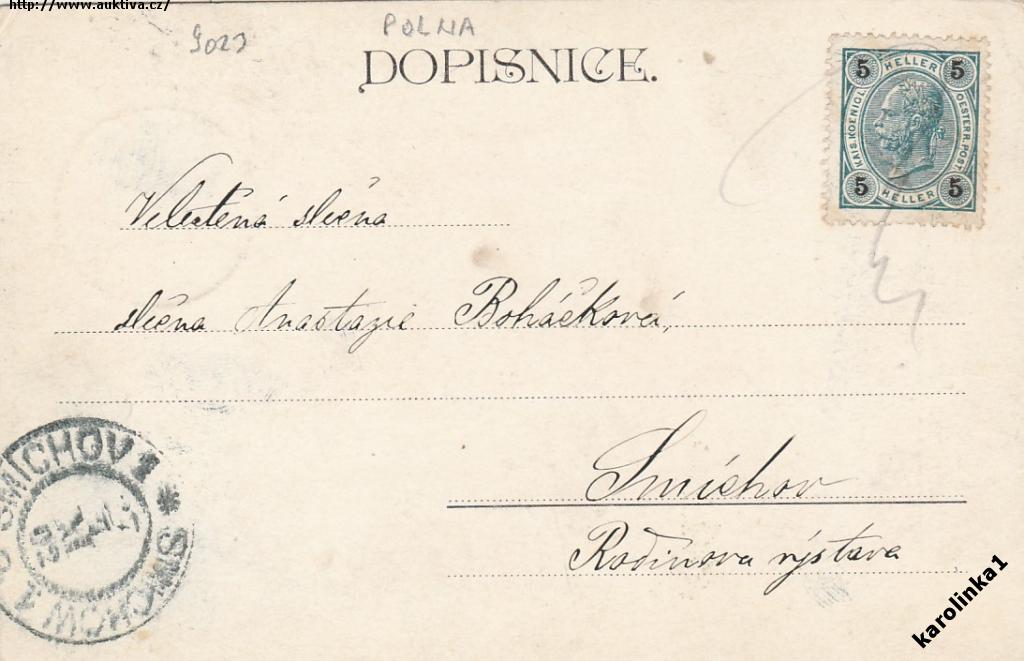 http://www.auktiva.cz/
9023
POLNA
DOPISNICE.
5 HELLER 5
KAIS. KOENIGL. OESTERR. POST
5 HELLER 5
Velectěná slečna
slečna Anastazie Boháčková,
Smíchov
Rodinova výstava
SMÍCHOV 1 * SMICHOW 1
karolinka1